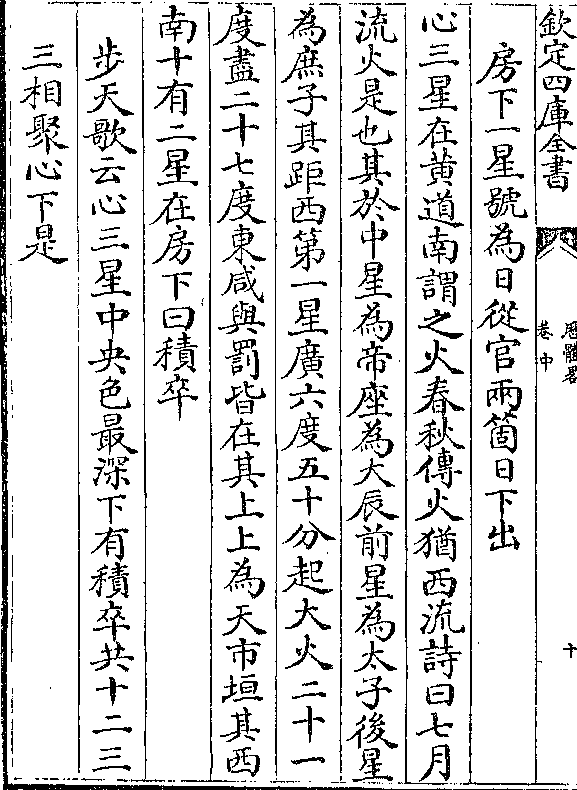 欽定四庫全書
厯體畧
卷中
十
房下一星號為日從官兩箇日下出
心三星在黄道南謂之火春秋傳火猶西流詩曰七月
流火是也其於中星為帝座為大辰前星為太子後星
為庶子其距西第一星廣六度五十分起大火二十一
度盡二十七度東咸與罰皆在其上上為天市垣其西
南十有二星在房下曰積卒
步天歌云心三星中央色最深下有積卒共十二三
三相聚心下是